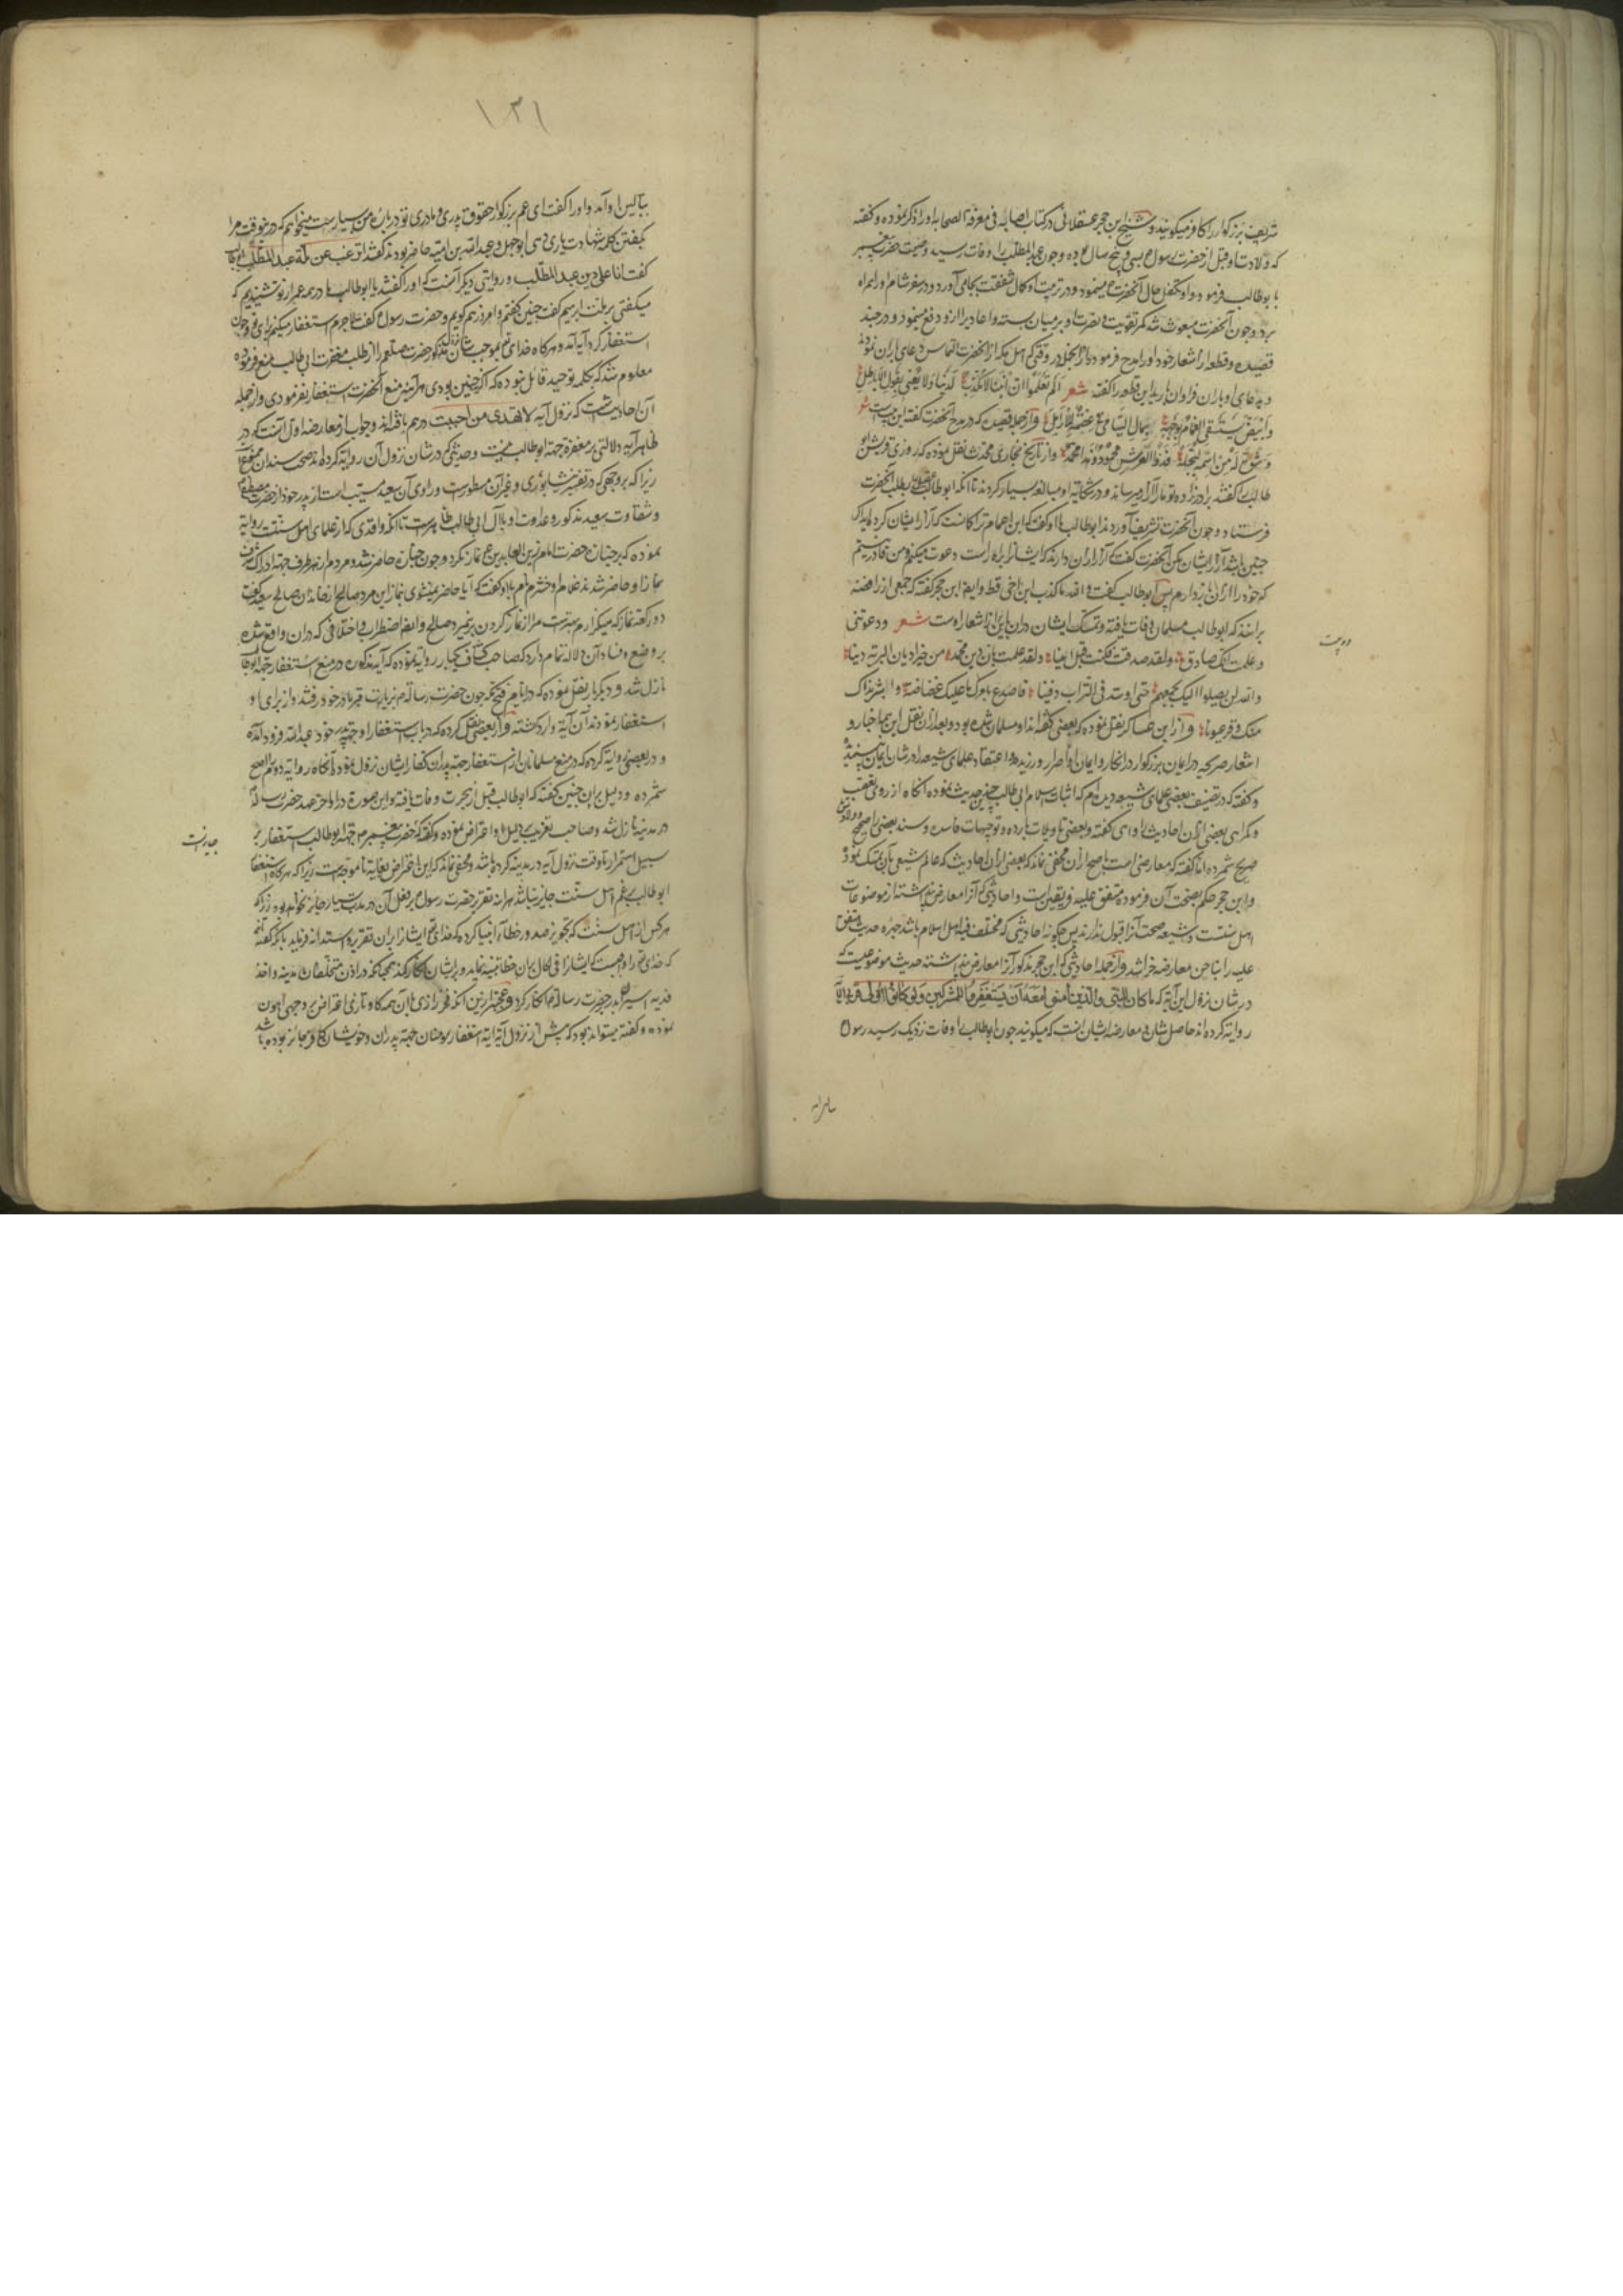 شریف بزرگوار را کافر میگویند و شیخ ابن حجر عسقلانی در کتاب اصابه فی معرفة الصحابه او را ذکر نموده و گفته
که ولادت او قبل از حضرت رسول بسی و پنج سال بوده و چون عبدالمطلب را وفات رسید وصیت حضرت پیغمبر
با بوطالب فرمود و او متکفل حال آنحضرت میشود و در تربیت او کمال شفقت بجای آورد و در سفر شام او را همراه
برد و چون آنحضرت مبعوث شد کمر تقویت و نصرت او بر میان بسته و اعادی را ازو دفع مینمود و در چند
قصیده و قطعه از اشعار خود او را مدح فرموده از آنجمله در وقتی که اهل مکه از آنحضرت التماس دعای باران نمودند
و بدعای او باران فراوان بارید این قطعه را گفته شعر الم تعلموا ان ابننا لا مکذب لدینا ولا یعنی بقول الاباطل
وابیض یستسقی الغمام بوجهه ثمال الیتامی عصمة للارامل و از جمله قصیده که در مدح آنحضرت گفته این بیت است شعر
وشق له من اسمه لیجله فذوالعرش محمود وهذا محمد و از تاریخ بخاری محدث نقل نموده که روزی قریش
طالب را گفتند برادرزاده تو ما را آزار میرساند و در شکایت او مبالغه بسیار کردند تا آنکه ابوطالب بطلب آنحضرت
فرستاد و چون آنحضرت تشریف آورد ابوطالب با او گفت که این اعمام ترا گمان است که آزار ایشان کرده
چنین باشد آزار ایشان مکن آنحضرت گفت که آزار ازان دارند که ایشانرا براه راست دعوت میکنم و من قادر نیستم
که خود را ازان باز دارم پس ابوطالب گفت والله ما کذب ابن اخی قط و ایضا ابن حجر گفته که جمعی از رافضه
برانند که ابوطالب مسلمان وفات یافته و تمسک ایشان دران باین اشعار اوست شعر ودعوتنی
وعلمت انک صادق ولقد صدقت فکنت قبل امینا ولقد علمت بان دین محمد من خیر ادیان البریة دینا
والله لن یصلوا الیک بجمعهم حتی اوسد فی التراب دفینا فاصدع بامرک ما علیک غضاضة وابشر بذاک
منک وقر عیونا و از ابن عساکر نقل نموده که بعضی گفته اند او مسلمان شده بود و بعد از نقل این همه اخبار و
اشعار صریحه در ایمان بزرگوار در انکار ایمان او اصرار ورزیده
و گفته که در تصنیف بعضی علمای شیعه دیده ام که اثبات اسلام ابی طالب بچندین حدیث نموده آنگاه از روی تعصب
و گمراهی بعضی ازان احادیث را واهی گفته و بعضی تاویلات بارده و توجیهات فاسده و سند بعضی را صحیح
صریح شمرده اما گفته که معارض است باصح ازان مخفی نماند که بعضی ازان احادیث که عالم شیعی بآن تمسک نموده
و ابن حجر حکم بصحت آن فرموده متفق علیه فریقین است و احادیثی که آنرا معارض پنداشته از موضوعات
اهل سنت است و شیعه صحت آنرا قبول ندارند پس چگونه احادیثی که مختلف فیه اهل اسلام باشد حدیث متفق
علیه را بناخن معارضه خراشد و از جمله احادیثی که ابن حجر مذکور آنرا معارض پنداشته حدیث موضوعیست که
در شان نزول این آیه که ما کان للنبی والذین آمنوا معه ان یستغفروا للمشرکین ولو کانوا اولی قربی الآیه
روایت کرده اند حاصل شان معارضه ایشان آنست که میگویند چون ابوطالب را وفات نزدیک رسید رسول
دو بیت
ببالین او آمد و او را گفت ای عم بزرگوار حقوق پدری و مادری تو در باره من بسیار است میخواهم که درین وقت مرا
بگفتن کلمه شهادت یاری دهی ابوجهل و عبدالله بن امیه حاضر بودند گفتند اترغب عن ملة عبدالمطلب ابوطالب
گفت انا علی دین عبدالمطلب و روایتی دیگر آنست که او را گفتند یا ابوطالب ما در همه عمر از تو شنیدیم که
میگفتی بر ملت ابراهیم گفت چنین گفتم و امروز هم گویم و حضرت رسول گفت لاجرم استغفار میکنم برای تو و چون
استغفار کرد آیه آمد و هرگاه خدای تعالی بموجب شان نزول مذکور حضرت صلعم را از طلب مغفرت ابی طالب منع فرموده
معلوم شد که بکلمه توحید قائل نبوده که اگر چنین بودی هر آینه منع آنحضرت استغفار نفرمودی و از جمله
آن احادیث است که نزول آیه لا تهدی من احببت درهم بافته اند و جواب از معارضه اول آنست که در
ظاهر آیه دلالتی بر مغفرة جهة ابوطالب نیست و حدیثی که در شان نزول آن روایة کرده اند صحت سند آن ممنوع
زیرا که بر وجهی که در تفسیر نیشابوری و غیر آن مسطورست راوی آن سعید مسیب است از پدر خود از حضرت مصطفی
و شقاوت سعید مذکور و عداوت او با آل ابی طالب ظاهرست تا آنکه واقدی که از علمای اهل سنت روایة
نموده که بر جنازه حضرت امام زین العابدین نماز نکرد و چون جنازه حاضر شد و مردم از هر طرف جهة ادراک شرف
نماز او حاضر شدند غلام او خشرم نام باو گفت که آیا حاضر نمیشوی بنماز این مرد صالح از خاندان صالح سعید گفت
دو رکعت نماز که میگزارم بهترست مرا از نماز کردن بر مرد صالح و ایضا اضطراب و اختلافی که دران واقع شده
بر وضع و فساد آن دلالة تمام دارد که صاحب کشاف یکبار روایة نموده که آیه مذکوره در منع استغفار جهة ابوطالب
نازل شد و دیگر بار نقل نموده که در ایام فتح مکه چون حضرت رسالة بزیارت قبر مادر خود رفتند و از برای او
استغفار نمودند آن آیه وارد گشته و از بعضی نقل کرده که در باب استغفار او جهة پدر خود عبدالله فرود آمده
و در بعضی روایة کرده که در منع مسلمانان از استغفار جهة پدران کفار ایشان نزول نموده آنگاه روایة دوم را اصح
شمرده و دلیل بران چنین گفته که ابوطالب قبل از هجرت وفات یافته و این صورة در اواخر عهد حضرت رسالة
در مدینه نازل شد و صاحب تقریب بر دلیل او اعتراض نموده و گفته که حضرت پیغمبر جهة ابوطالب استغفار بر
سبیل استمرار تا وقت نزول آیه در مدینه کرده باشد و مخفی نماند که این اعتراض بغایة ناموجه است زیرا که هرگاه استغفار
ابوطالب بزعم اهل سنت جایز نباشد هر آینه تقریر حضرت رسول بر فعل آن در مدت بسیار جائز نخواهد بود زیرا که
هر کس از اهل سنت که تجویز صدور خطا از انبیا کرده که خدای تعالی ایشانرا بران تقریر و استدامه فرماید بلکه گفته اند
که خدای تعالی را واجبست که ایشانرا فی الحال بران خطا تنبیه نماید و بر ایشان انکار کند همچنانکه در اذن متخلفان مدینه و اخذ
فدیه اسیران بدر بحضرت رسالة انکار کرد و عجبتر ازین آنکه فخر رازی با آن همه کاو تازی اعتراض بر وجهی اهون
نموده و گفته میتواند بود که پیش از نزول آیه استغفار مومنان جهة پدران و خویشان کافر جائز بوده باشد